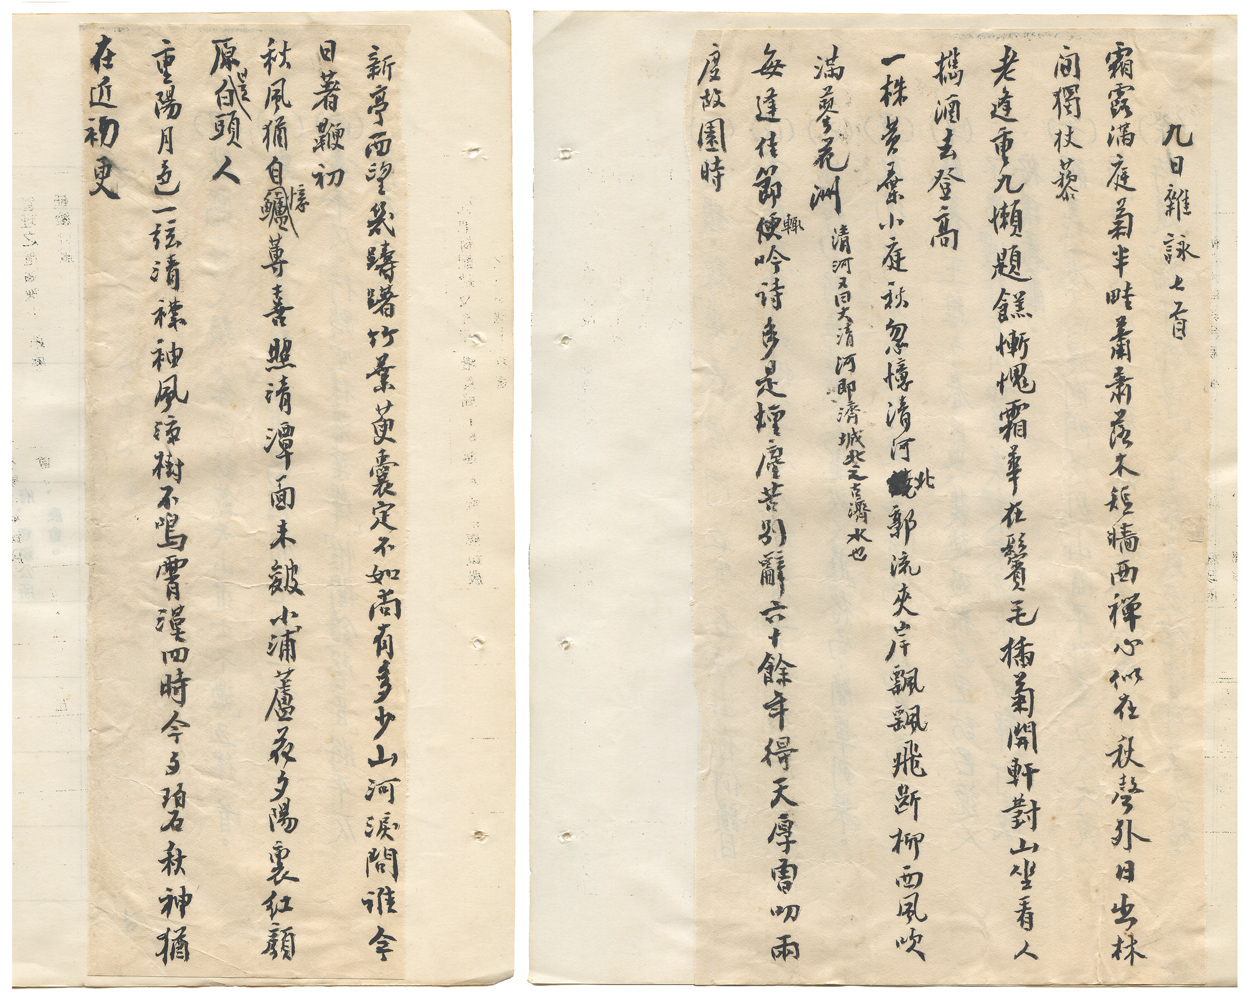 九日雜詠七首
霜露滿庭菊半畦蕭蕭落木短牆西禪心似在秋聲外日出林
間獨杖藜
老逢重九懶題餻慚愧霜華在鬢毛插菊開軒對山坐看人
攜酒去登高
一株黃葉小庭秋忽憶清河北郭流夾岸飄飄飛斷柳西風吹
滿蓼花洲 清河又曰大清河即濟城北之古濟水也
每逢佳節便輒吟詩多是煙塵苦別辭六十餘年得天厚曾叨兩
度故園時
新亭西望幾躊躇竹葉萸囊定不如尚有多少山河淚問誰今
日著鞭初
秋風猶自憶鱸蓴喜照清潭面未皴小浦蘆花夕陽裏紅顏
原是白頭人
重陽月色一弦清襟袖風涼樹不鳴霄漢四時今與碧秋神猶
在近初更